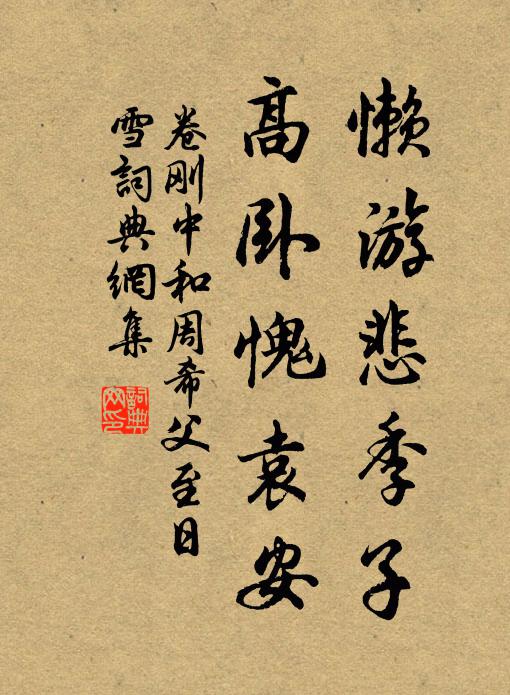 懒游悲季子
高卧愧袁安
卷刚中和周希父至日
雪詞典網集
詞典
网印